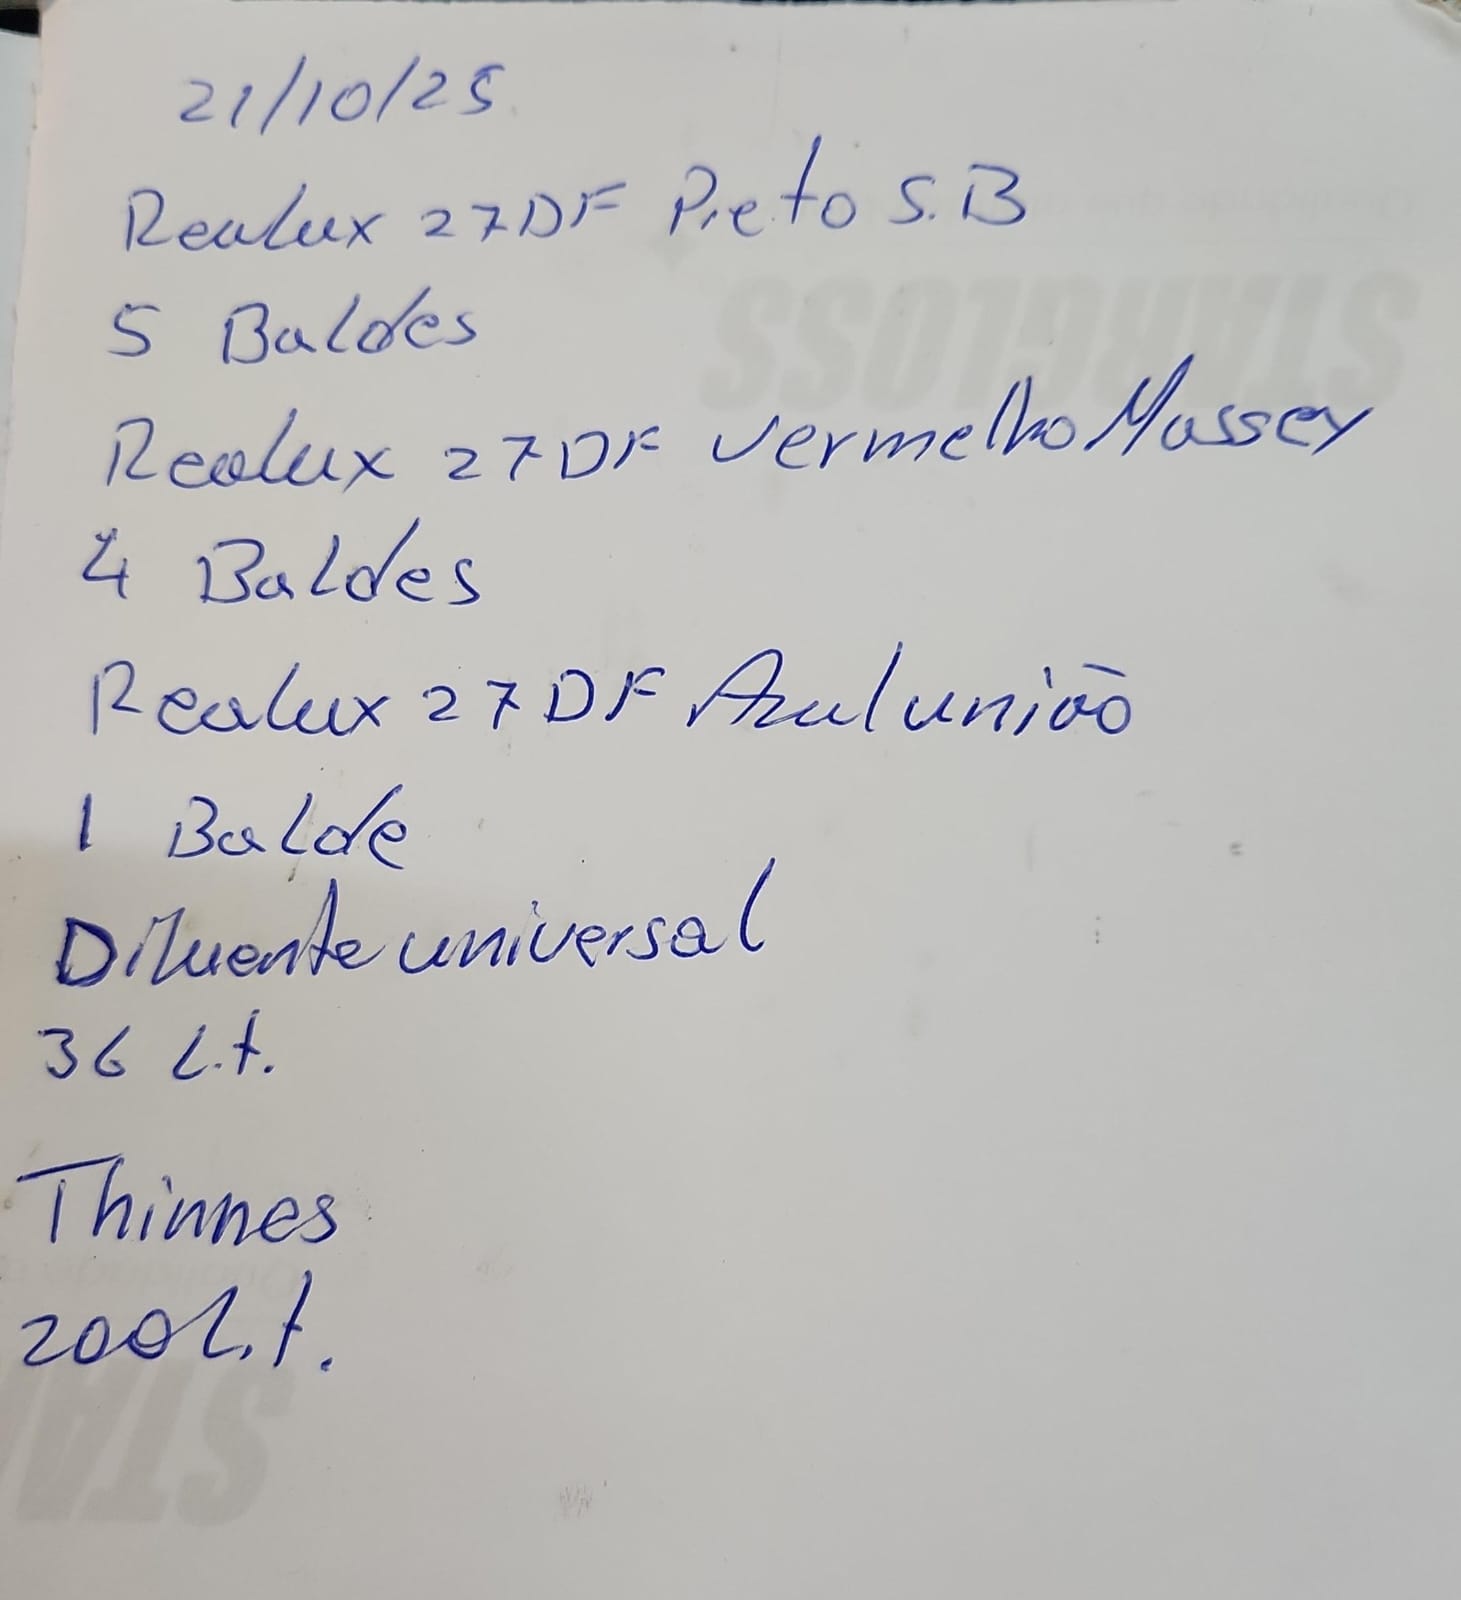 21/10/25
Realux 27DF Preto S.B
5 Baldes
Realux 27DF vermelho Massey
4 Baldes
Realux 27DF Azul união
1 Balde
Diluente universal
36 L.t.
Thinnes
200 L.t.
STARGLOSS
STA